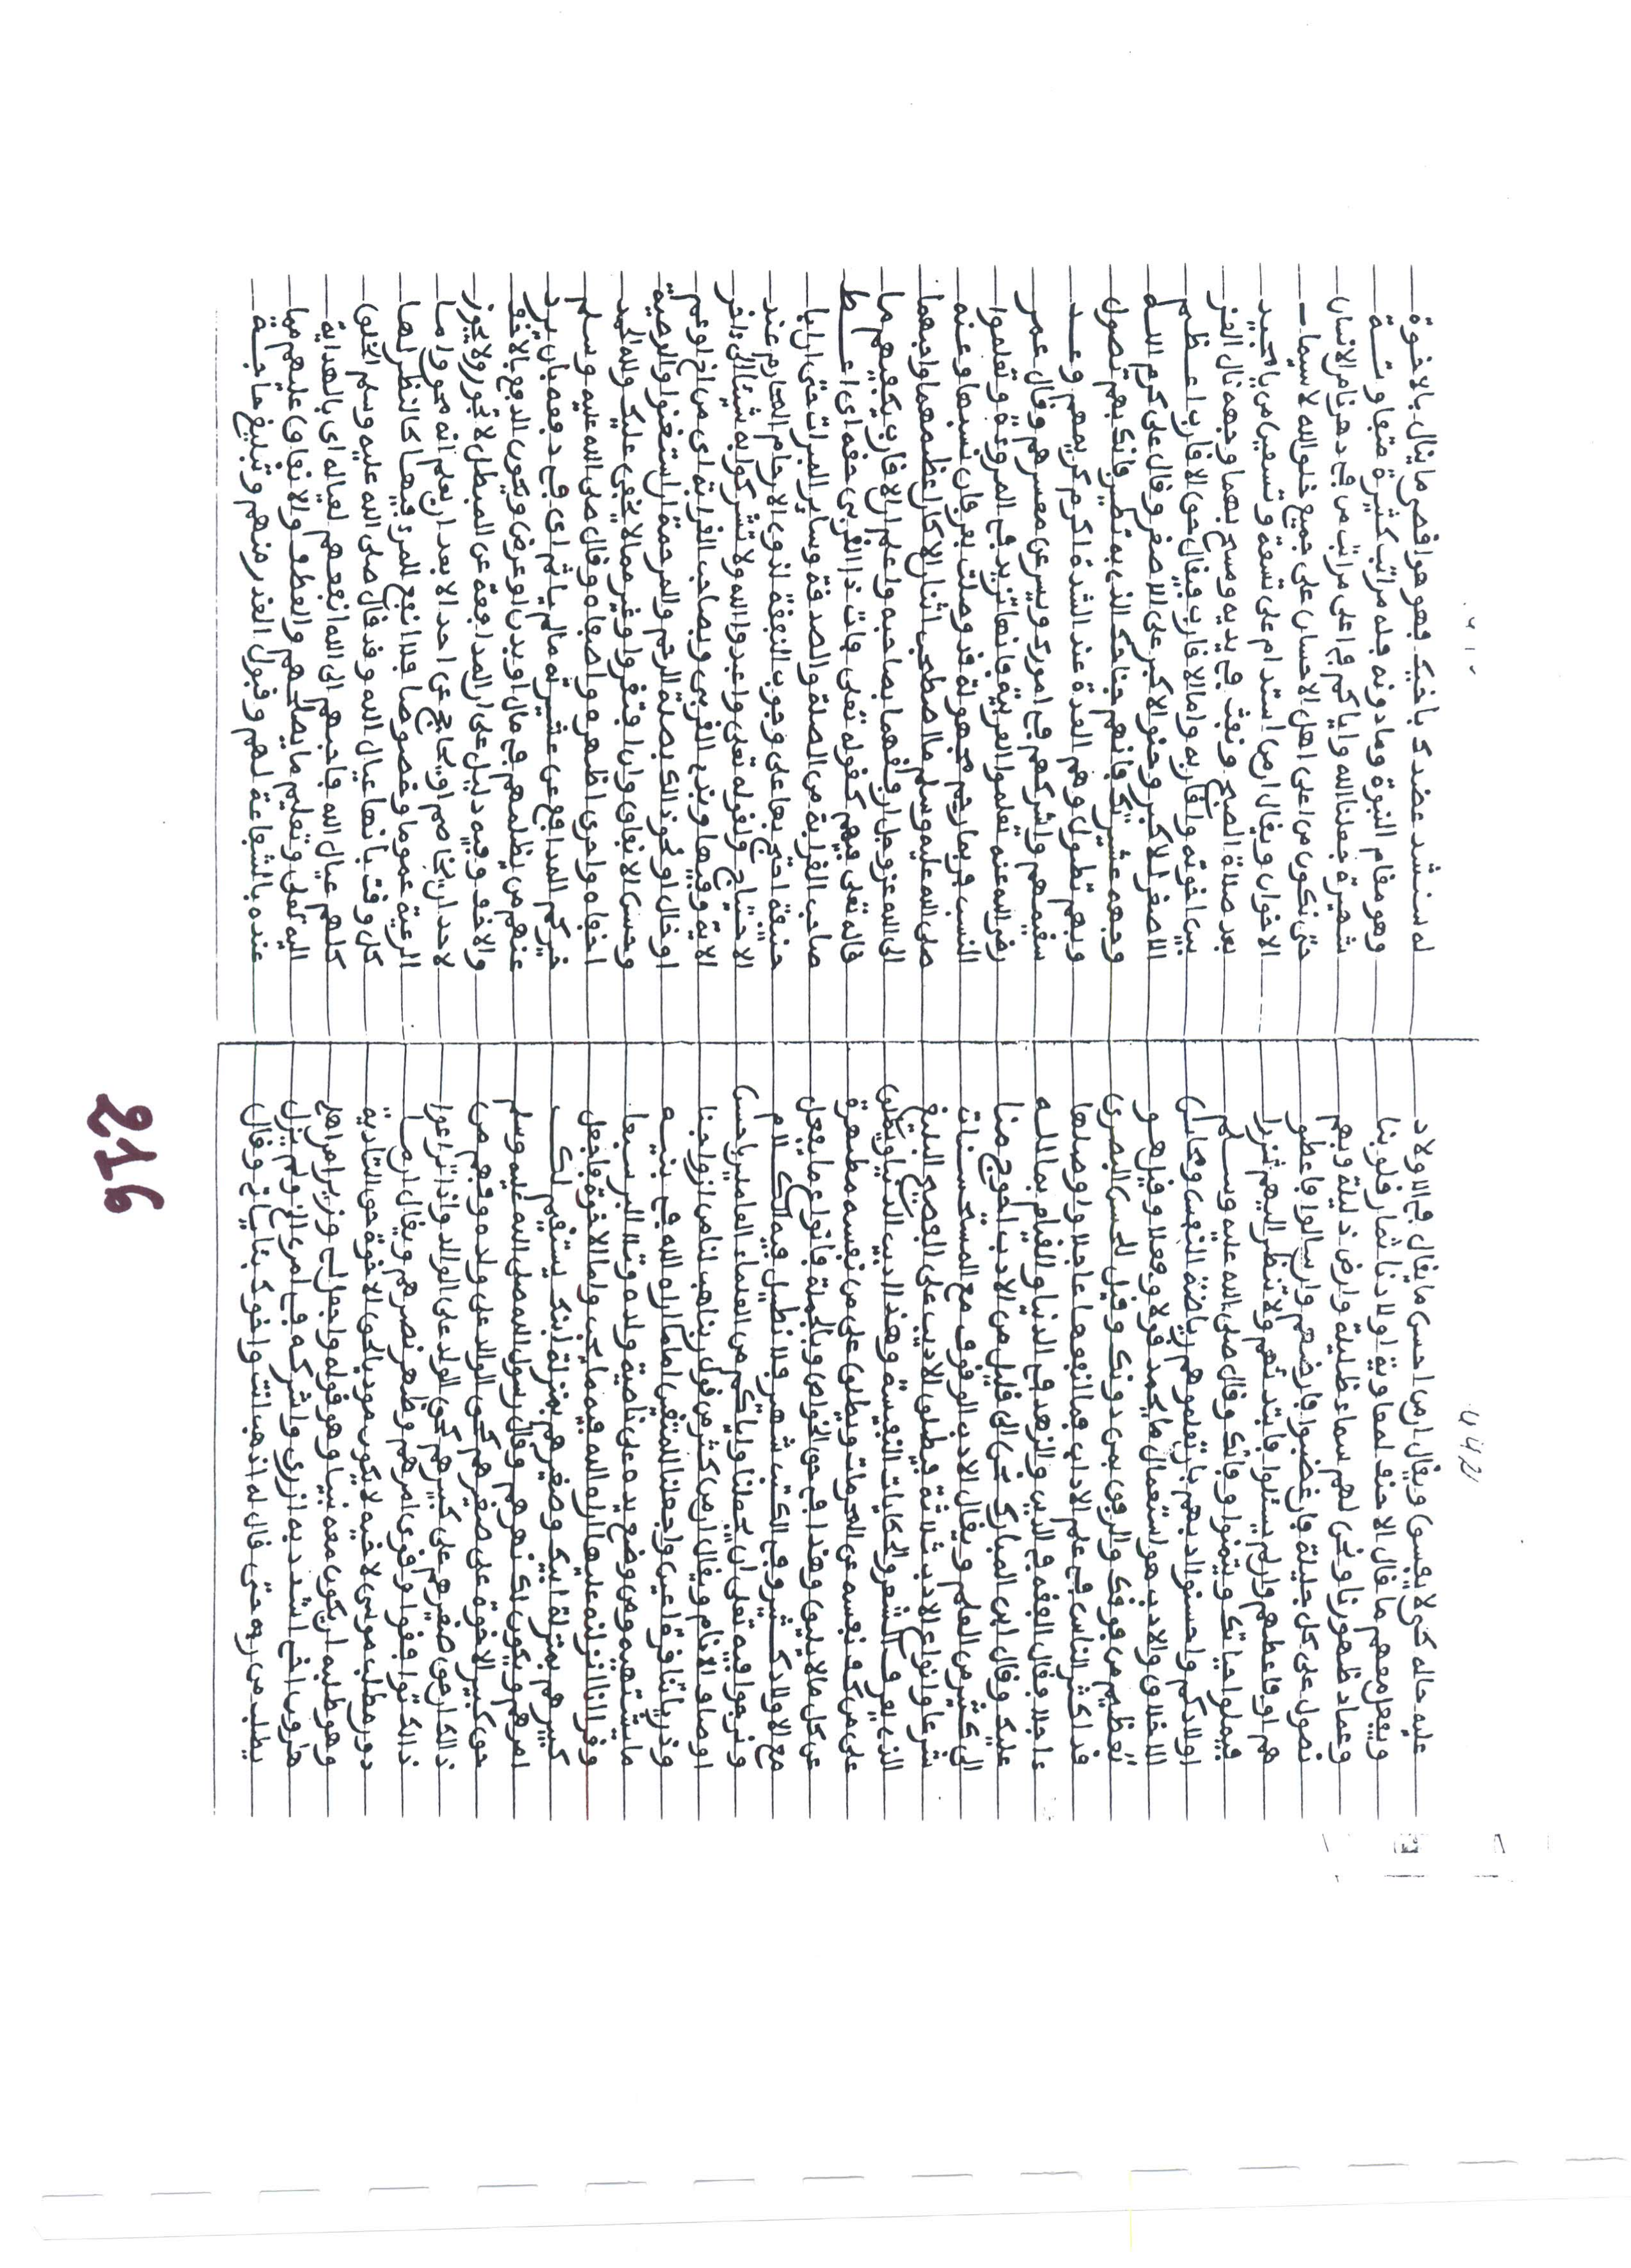 عليه حاله كى لا يفسى ويقال ان من احسن ما يقال في الاولاد
ويفعل معهم ما قال الاحنف لمعاوية اولادنا ثمار قلوبنا
وعماد ظهورنا ونحن لهم سماء ظليلة وارض ذليلة وبهم
نصول على كل جليلة فان غضبوا فارضهم وان سالوا فاعطو
هم وان لم يسئلوا فابتدئهم ولا تنظر اليهم شزرا
فيملوا حياتك ويتمنوا وفاتك وقال صلى الله عليه وسلم
اولادكم واحسنوا ادبهم بان تعلموهم رياضة النفس ومحاسن
الاخلاق والادب هو استعمال ما يحمد قولا وفعلا وقيل هو
تعظيم من فوقك والرفق بمن دونك وقيل للحسن البصري
قد اكثر الناس في علم الاداب فما انفعها عاجلا واوصلها
عاجلا فقال الفقه في الدين والزهد في الدنيا والقيام بما لله
عليك وقال ابن المبارك نحن الى قليل من الادب احوج منا
الى كثير من العلم ويقال الادب الوقوف مع المستحسنات
شرعا وانواع الادب ثلاثة فيطلق الاديب على الفصيح البليغ
الذي يعرف الشعر والحكايات النفيسة وهذا اديب الدنيا ويطلق
على من كف نفسه عن المحرمات ويطلق على من نفسه مطهرة
عن كل ما لا يليق وهذا في حق الخواص وبالجملة فانواع ما يفعل
مع الاولاد كثير وفي الكتب شهير فلا نطيل فيه الكلام
ونرجوا فيه تعلى ان يجعلنا واياكم من العلماء العاملين باحسن
اوصاف الانام ويقال ان من كثر من قول ربنا هب لنا من ازواجنا
وذرياتنا قرة اعين واجعلنا للمتقين اماما اراه الله في بنيه
ما يشتهيه ومن وضع يده على ناصية ولده وتلا البر سبعا
وقرا انا انزلنه عليها اراه الله فيه ما يحب واما الاخوة فاجعل
كبيرهم بمنزلة ابيك وصغيرهم بمنزلة ابنك يستقيم لك
امرهم ويكون لك نهرهم وقال رسول الله صلى الله عليه وسلم
حق كبير الاخوة على صغيرهم كحق الوالد على ولده وفهم من
ذالك ان حق صغيرهم على كبيرهم كحق الولد على الوالد واذا راعوا
ذالك توافقوا وقوى امرهم وظهر نصرهم ويقال ان ما
دون مطلب موسى لاخيه لا يكون مودي الحق الاخوة حق التادية
وهو طلبه ان يكون معه نبيا وهو قوله واجعل لي وزيرا من اهلي
هارون اخي اشدد به ازري واشركه في امري الخ ولم يزل
يطلب من ربه حتى قال له اذهب انت واخوك بئاياتي وقال
له سنشد عضدك باخيك فهو اقصى ما ينال بالاخوة
وهو مقام النبوة وما دونه فله مراتب كثيرة متفاوتة
شهيرة جعلنا الله واياكم في اعلى مراتب من في دهرنا من الانسان
حتى نكون من اعلى اهل الاحسان على جميع خلق الله لا سيما
الاخوان ويقال ان من استدام على تسعة وتسعين من يا مجيد
بعد صلاة الصبح ونفث في يديه ومسح بهما وجهه نال العز
بين اخوته واقاربه واما الاقارب فيقال حق الاقارب اعظم
الاصغر للاكبر وحنو الاكبر على الاصغر وقال على كرم الله
وجهه عشيرتك فانهم جناحك الذي به تطير فانك بهم تصول
وبهم تطول وهم العدة عند الشدة اكرم كريمهم وعد
سقيمهم واشركهم في امورك ويسر عن معسرهم وقال عمر
رضي الله عنه تعلموا العربية فانها تزيد في المروءة وتعلموا
النسب فربما رحم مجهولة قد وصلت بعرفان نسبها وعنه
صلى الله عليه وسلم ما اصطحب اثنان الا كان اعظمهما واحبهما
الى الله عز وجل ارفقهما بصاحبه واعلم ان الاقارب يكفيهم ما
قاله تعلى فيهم كقوله تعلى وءات ذا القربى حقه اى اعط
صاحب القرابة من الصلة والصدقة وسائر المبرات حتى ان ابا
حنيفة احتج بها على وجوب النفقة لذوي الارحام المحارم عند
الاحتياج ولقوله تعلى واعبدوا الله ولا تشركوا به شيئا الى ءاخر
الاية وفيها وبذي القربى وبصاحب القرابة اى من اخ او عم
او خال او نحو ذالك بصلة الرحم والمرحمة ان استغنوا والوصية
وحسن الانفاق وان افتقروا وغير مما لا يخفى عليك ولله الحمد
اخفاه واحرى اظهره واصفاه وقال صلى الله عليه وسلم
خيركم المدافع عن عشيرته ما لم ياثم اى في دفعه بان يرد
عنهم من يظلمهم في مال او بدن او عرض ويكون الدفع بالاخف
والاخف وفيه دليل على ان المدافعة عن المبطل لا تجوز ولا يجوز
لاحد ان يخاصم او يحاجج عن احد الا بعد ان يعلم انه محق واما
الرعية عموما وخصوصا فلا انفع للمرء فيها كالنظر لها
كل وقت بانها عيال الله وقد قال صلى الله عليه وسلم الخلق
كلهم عيال الله فاحبهم الى الله انفعهم لعياله اى بالهداية
اليه تعلى وتعليم ما يصلحهم والعطف والانفاق عليهم مما
عنده بالشفاعة لهم وقبول العذر منهم وتبليغ حاجة
216